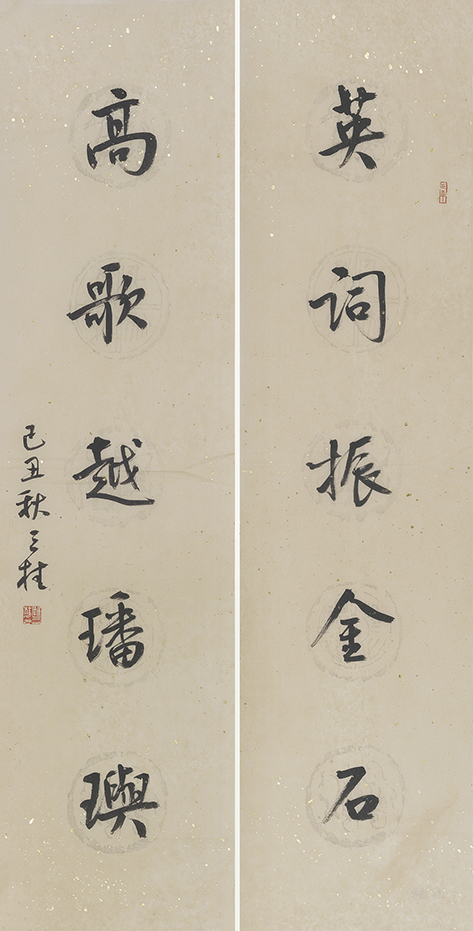 英词振金石
高歌越璠玙
己丑秋之桂